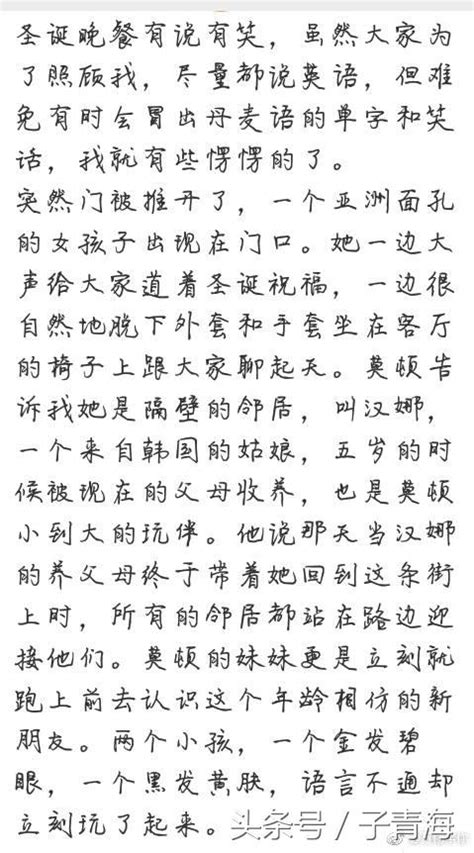 圣诞晚餐有说有笑，虽然大家为
了照顾我，尽量都说英语，但难
免有时会冒出丹麦语的单字和笑
话，我就有些愣愣的了。
突然门被推开了，一个亚洲面孔
的女孩子出现在门口。她一边大
声给大家道着圣诞祝福，一边很
自然地脱下外套和手套坐在客厅
的椅子上跟大家聊起天。莫顿告
诉我她是隔壁的邻居，叫汉娜，
一个来自韩国的姑娘，五岁的时
候被现在的父母收养，也是莫顿
小到大的玩伴。他说那天当汉娜
的养父母终于带着她回到这条街
上时，所有的邻居都站在路边迎
接他们。莫顿的妹妹更是立刻就
跑上前去认识这个年龄相仿的新
朋友。两个小孩，一个金发碧
眼，一个黑发黄肤，语言不通却
立刻玩了起来。
头条号／子青海